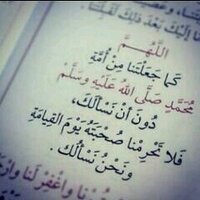 اللَّهُمَّ
كَمَا جَعَلْتَنَا مِنْ أُمَّةِ
مُحَمَّدٍ صَلَّى اللهُ عَلَيْهِ وَسَلَّمَ
دُونَ أَنْ نَسْأَلَكَ،
فَلَا تَحْرِمْنَا صُحْبَتَهُ يَوْمَ القِيَامَةِ
وَنَحْنُ نَسْأَلُكَ.